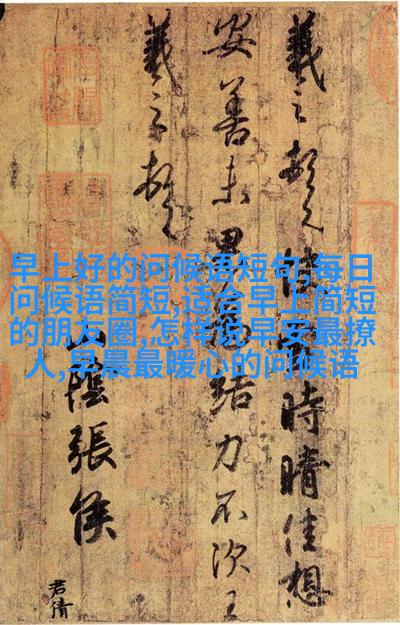 早上好的问候语短句,每日
问候语简短,适合早上简短
的朋友圈,怎样说早安最撩
人,早晨最暖心的问候语
羲之頓首快雪時晴佳想
安善未果為結力不次王
羲之頓首
山陰張侯
君倩